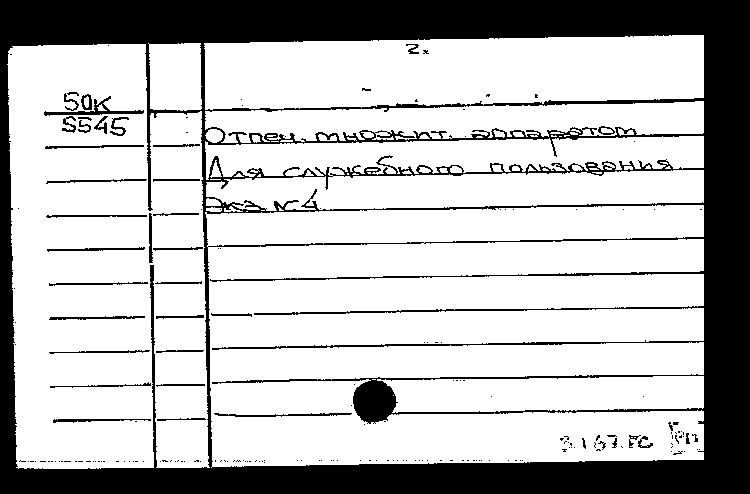 2.
50К
S545
Отпеч. множит. аппаратом
Для служебного пользования
Экз №4
3.167.ГС РП